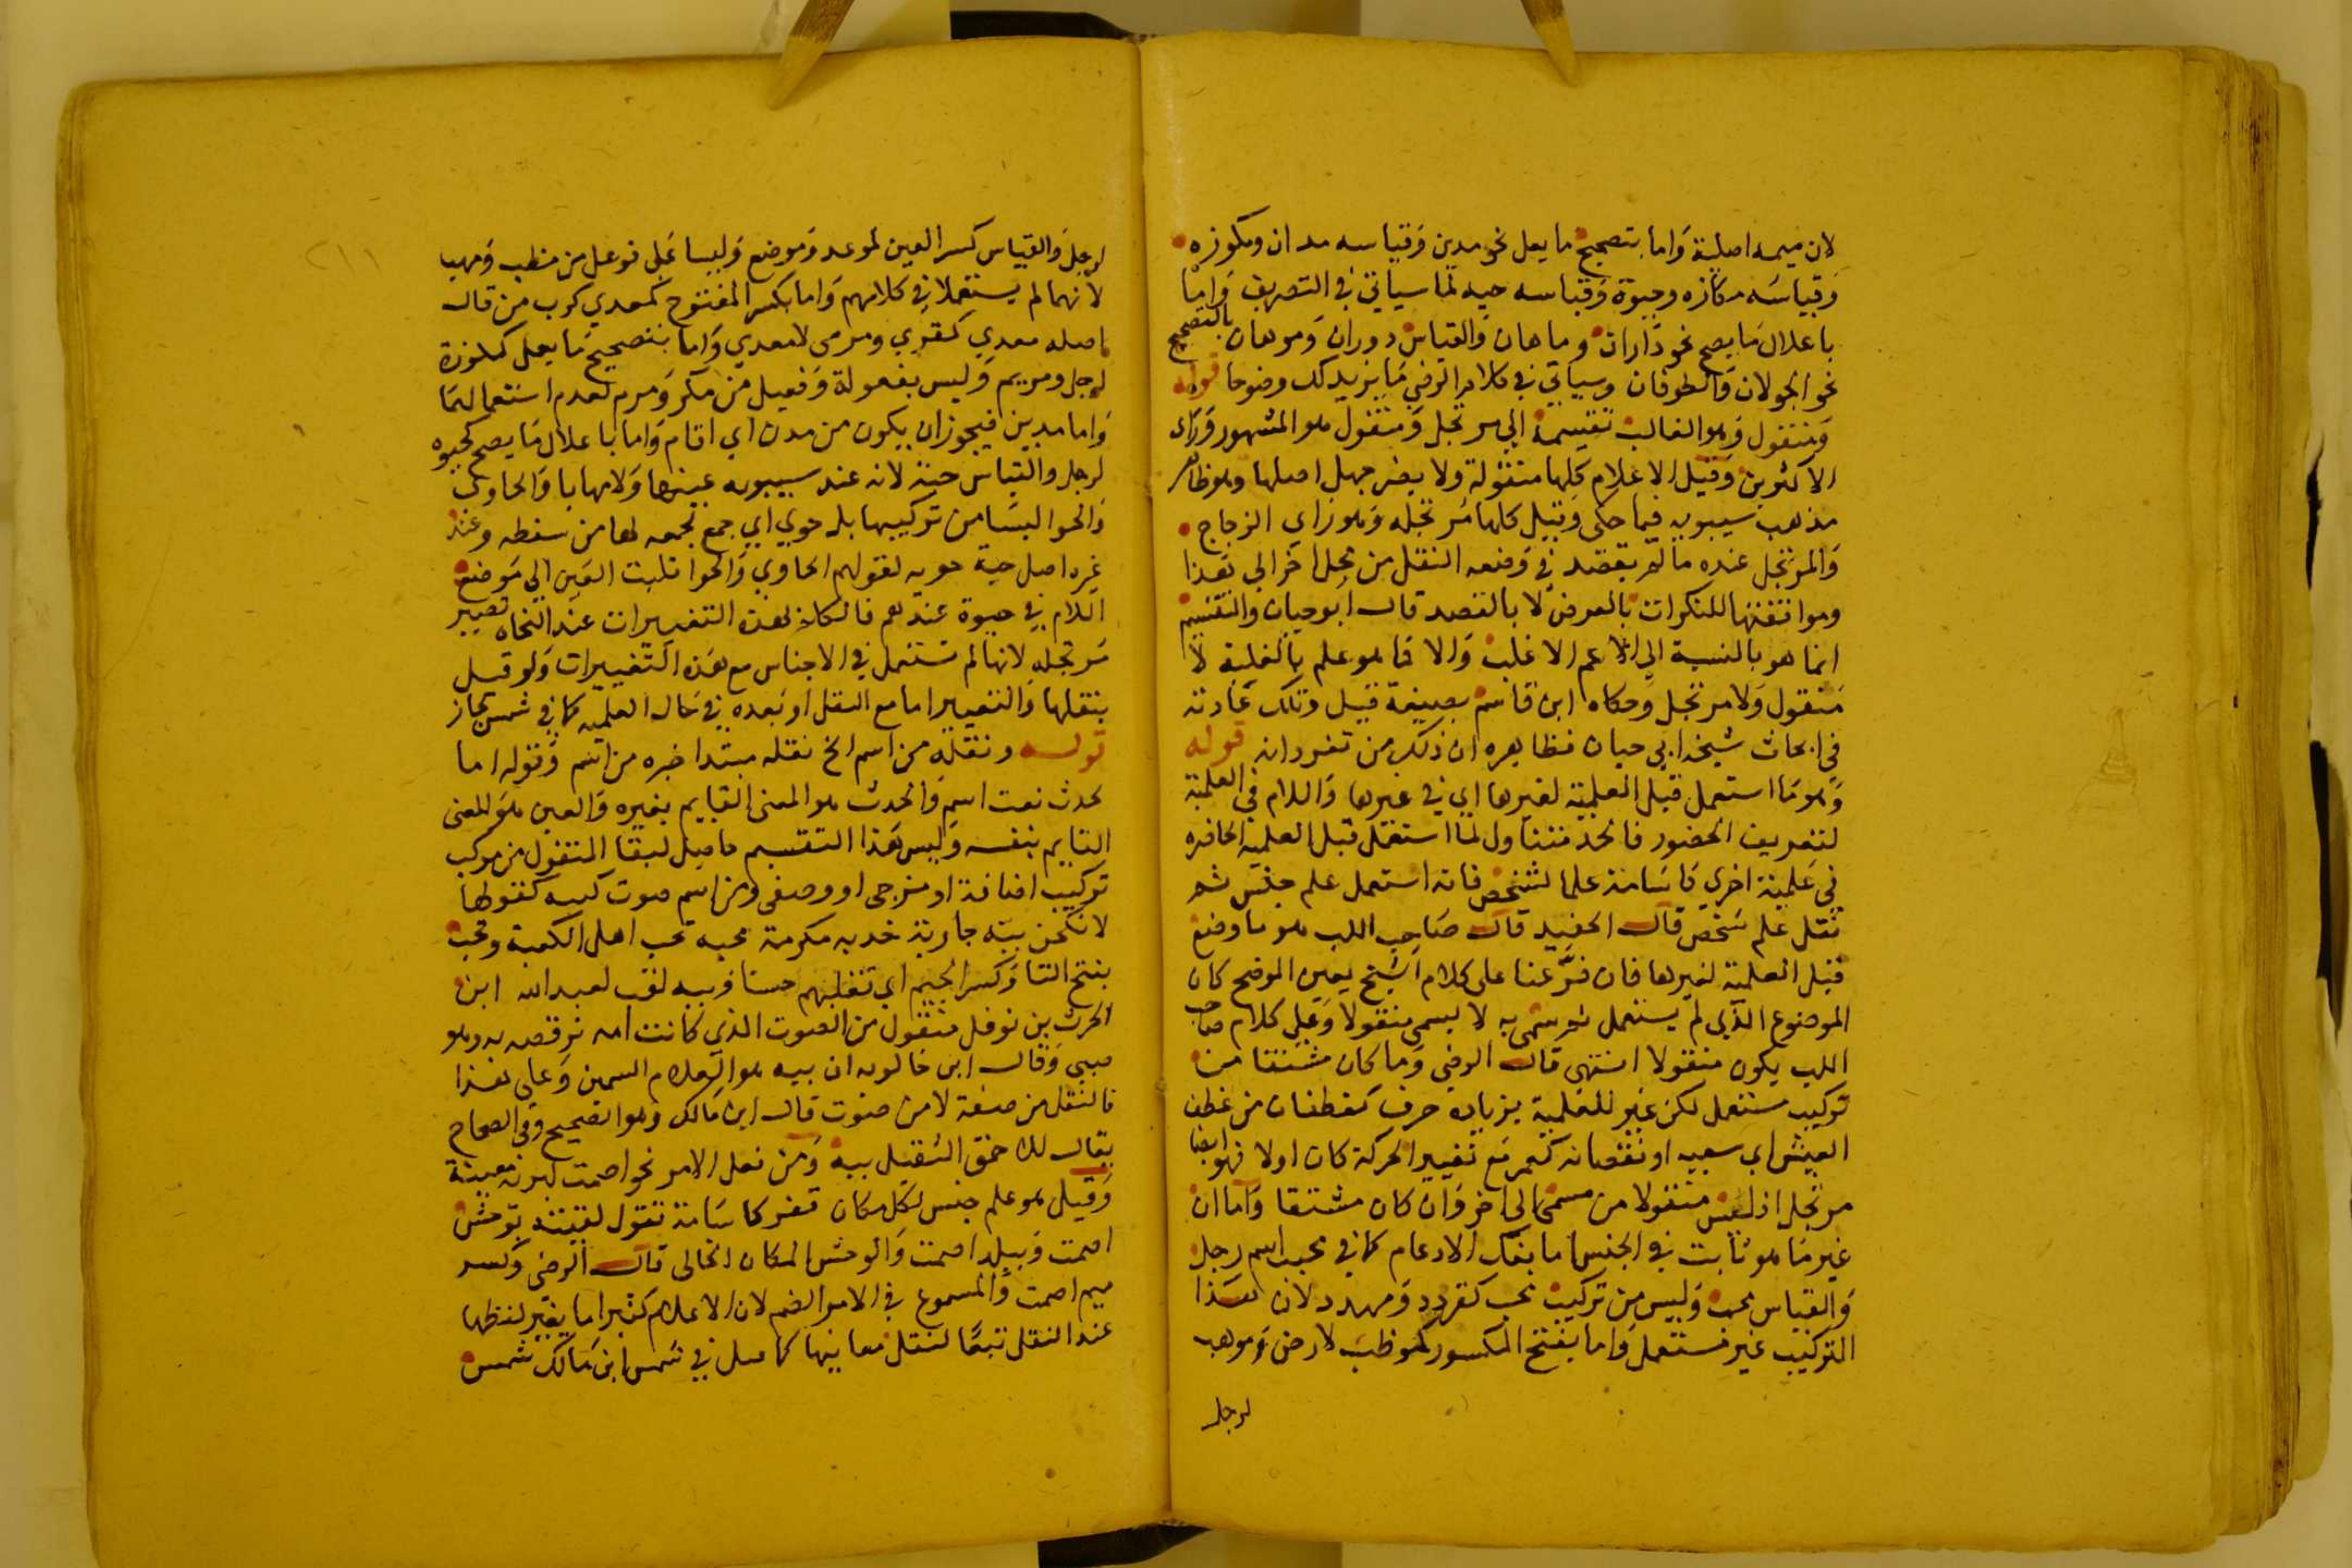 لان ميمه اصلية واما بتصحيح ما يعل نحو مدين وقياسه مدان ومكوزه
وقياسه مكازه وحيوة وقياسه حيه لما سياتي في التصريف واما
باعلال ما يصح نحو داران وماهان والقياس دوران وموهان بالتصحيح
نحو الجولان والطوفان وسياتي في كلام الرضي ما يزيدك وضوحا قوله
ومنقول وهو الغالب تقسيمه الي مرتجل ومنقول هو المشهور وراي
الاكثرين وقيل الاعلام كلها منقولة ولا يضر جهل اصلها وهو ظاهر
مذهب سيبويه فيما حكي وقيل كلها مرتجله وهو راي الزجاج
والمرتجل عنده ما لم يقصد في وضعه النقل من محل اخر الي هذا
وموافقتها للنكرات بالعرض لا بالقصد قال ابو حيان والتقسيم
انما هو بالنسبة الي الاعم الاغلب والا فما هو علم بالغلبة لا
منقول ولا مرتجل وحكاه ابن قاسم بصيغة قيل وتلك عادته
في ابحاث شيخه ابي حيان فظاهره ان ذلك من تفرداته قوله
وهو ما استعمل قبل العلمية لغيرها اي في غيرها واللام في العلمية
لتعريف الحضور فالحد متناول لما استعمل قبل العلمية الحاضره
في علمية اخري كاسامة علما لشخص فانه استعمل علم جنس ثم
نقل علم شخص قال الحفيد قال صاحب اللب هو ما وضع
قبل العلمية لغيرها فان فرعنا على كلام الشيخ يعين الموضح كان
الموضوع الذي لم يستعمل ثم سمي به لا يسمى منقولا وعلي كلام صاحب
اللب يكون منقولا انتهى قال الرضي وما كان مشتقا من
تركيب مستعمل لكن غير للعلمية بزيادة حرف كغطفان من غطف
العيش اي سعيه او نقصانه كعمر مع تغيير الحركة كان اولا فهو ايضا
مرتجل اذ ليس منقولا من مسمى الى اخر وان كان مشتقا واما ان
غير ما هو ثابت في الجنس اما بفك الادغام كما في محبب اسم رجل
والقياس محب وليس من تركيب محب كقردد ومهدد لان هذا
التركيب غير مستعمل واما بفتح المكسور كموظب لارض وموهب
لرجل
لرجل والقياس كسر العين كموعد وموضع وليسا علي فوعل من مظب ومهب
لانهما لم يستعملا في كلامهم واما بكسر المفتوح كمعدي كرب من قال
اصله معدي كمغري ومرمى لا معدي واما بتصحيح ما يعل كمكوزة
لرجل ومريم وليس بفعولة وفعيل من مكر ومرم لعدم استعمالهما
واما مدين فيجوز ان يكون من مدن اي اقام واما باعلال ما يصح كحيوه
لرجل والقياس حية لانه عند سيبويه عينها ولامها يا والحاوي
والحوا ليسا من تركيبها بل حوي اي جمع لجمعه لها من سفطه وعند
غيره اصل حية حويه لقولهم الحاوي والحوا قلبت العين الي موضع
اللام في حيوة عندهم فالكل بهذه التغييرات عند النحاه تصير
مرتجله لانها لم تستعمل في الاجناس مع هذه التغييرات ولو قيل
بنقلها والتغيير اما مع النقل او بعده في حال العلمية كما في شمس لجاز
قوله ونقله من اسم الخ نقله مبتدا خبره من اسم وقوله اما
لحدث نعت اسم والحدث هو المعنى القايم بغيره والعين هو المعنى
القايم بنفسه وليس هذا التقسيم حاصل لبقا المنقول من مركب
تركيب اضافة او مزجى او وصفي ومن اسم صوت كببه كقولها
لانكحن ببه جارية خدبه مكرمة محبه تحب اهل الكعبة وتجب
بفتح التا وكسر الجيم اي تغلبهم حسنا وببه لقب لعبد الله ابن
الحرث بن نوفل منقول من الصوت الذي كانت امه ترقصه به وهو
صبي وقال ابن خالويه ان ببه هو الغلام السمين وعلي هذا
فالنقل من صفة لا من صوت قال ابن مالك وهو الصحيح وفي الصحاح
يقال للاحمق الثقيل ببه ومن فعل الامر نحو اصمت لبرية معينة
وقيل هو علم جنس لكل مكان قفر كاسامة تقول لقيته بوحش
اصمت وببلد اصمت والوحش المكان الخالى قال الرضى وكسر
ميم اصمت والمسموع في الامر الضم لان الاعلام كثيرا ما يغير لفظها
عند النقل تبعا لنقل معانيها كما قيل في شمس ابن مالك شمس